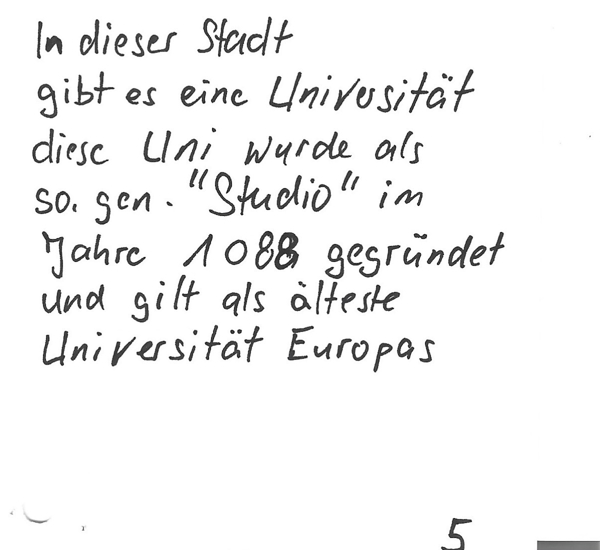 In dieser Stadt
gibt es eine Univosität
diese Uni wurde als
so. gen. "Studio" im
Jahre 1088 gegründet
und gilt als älteste
Universität Europas
5